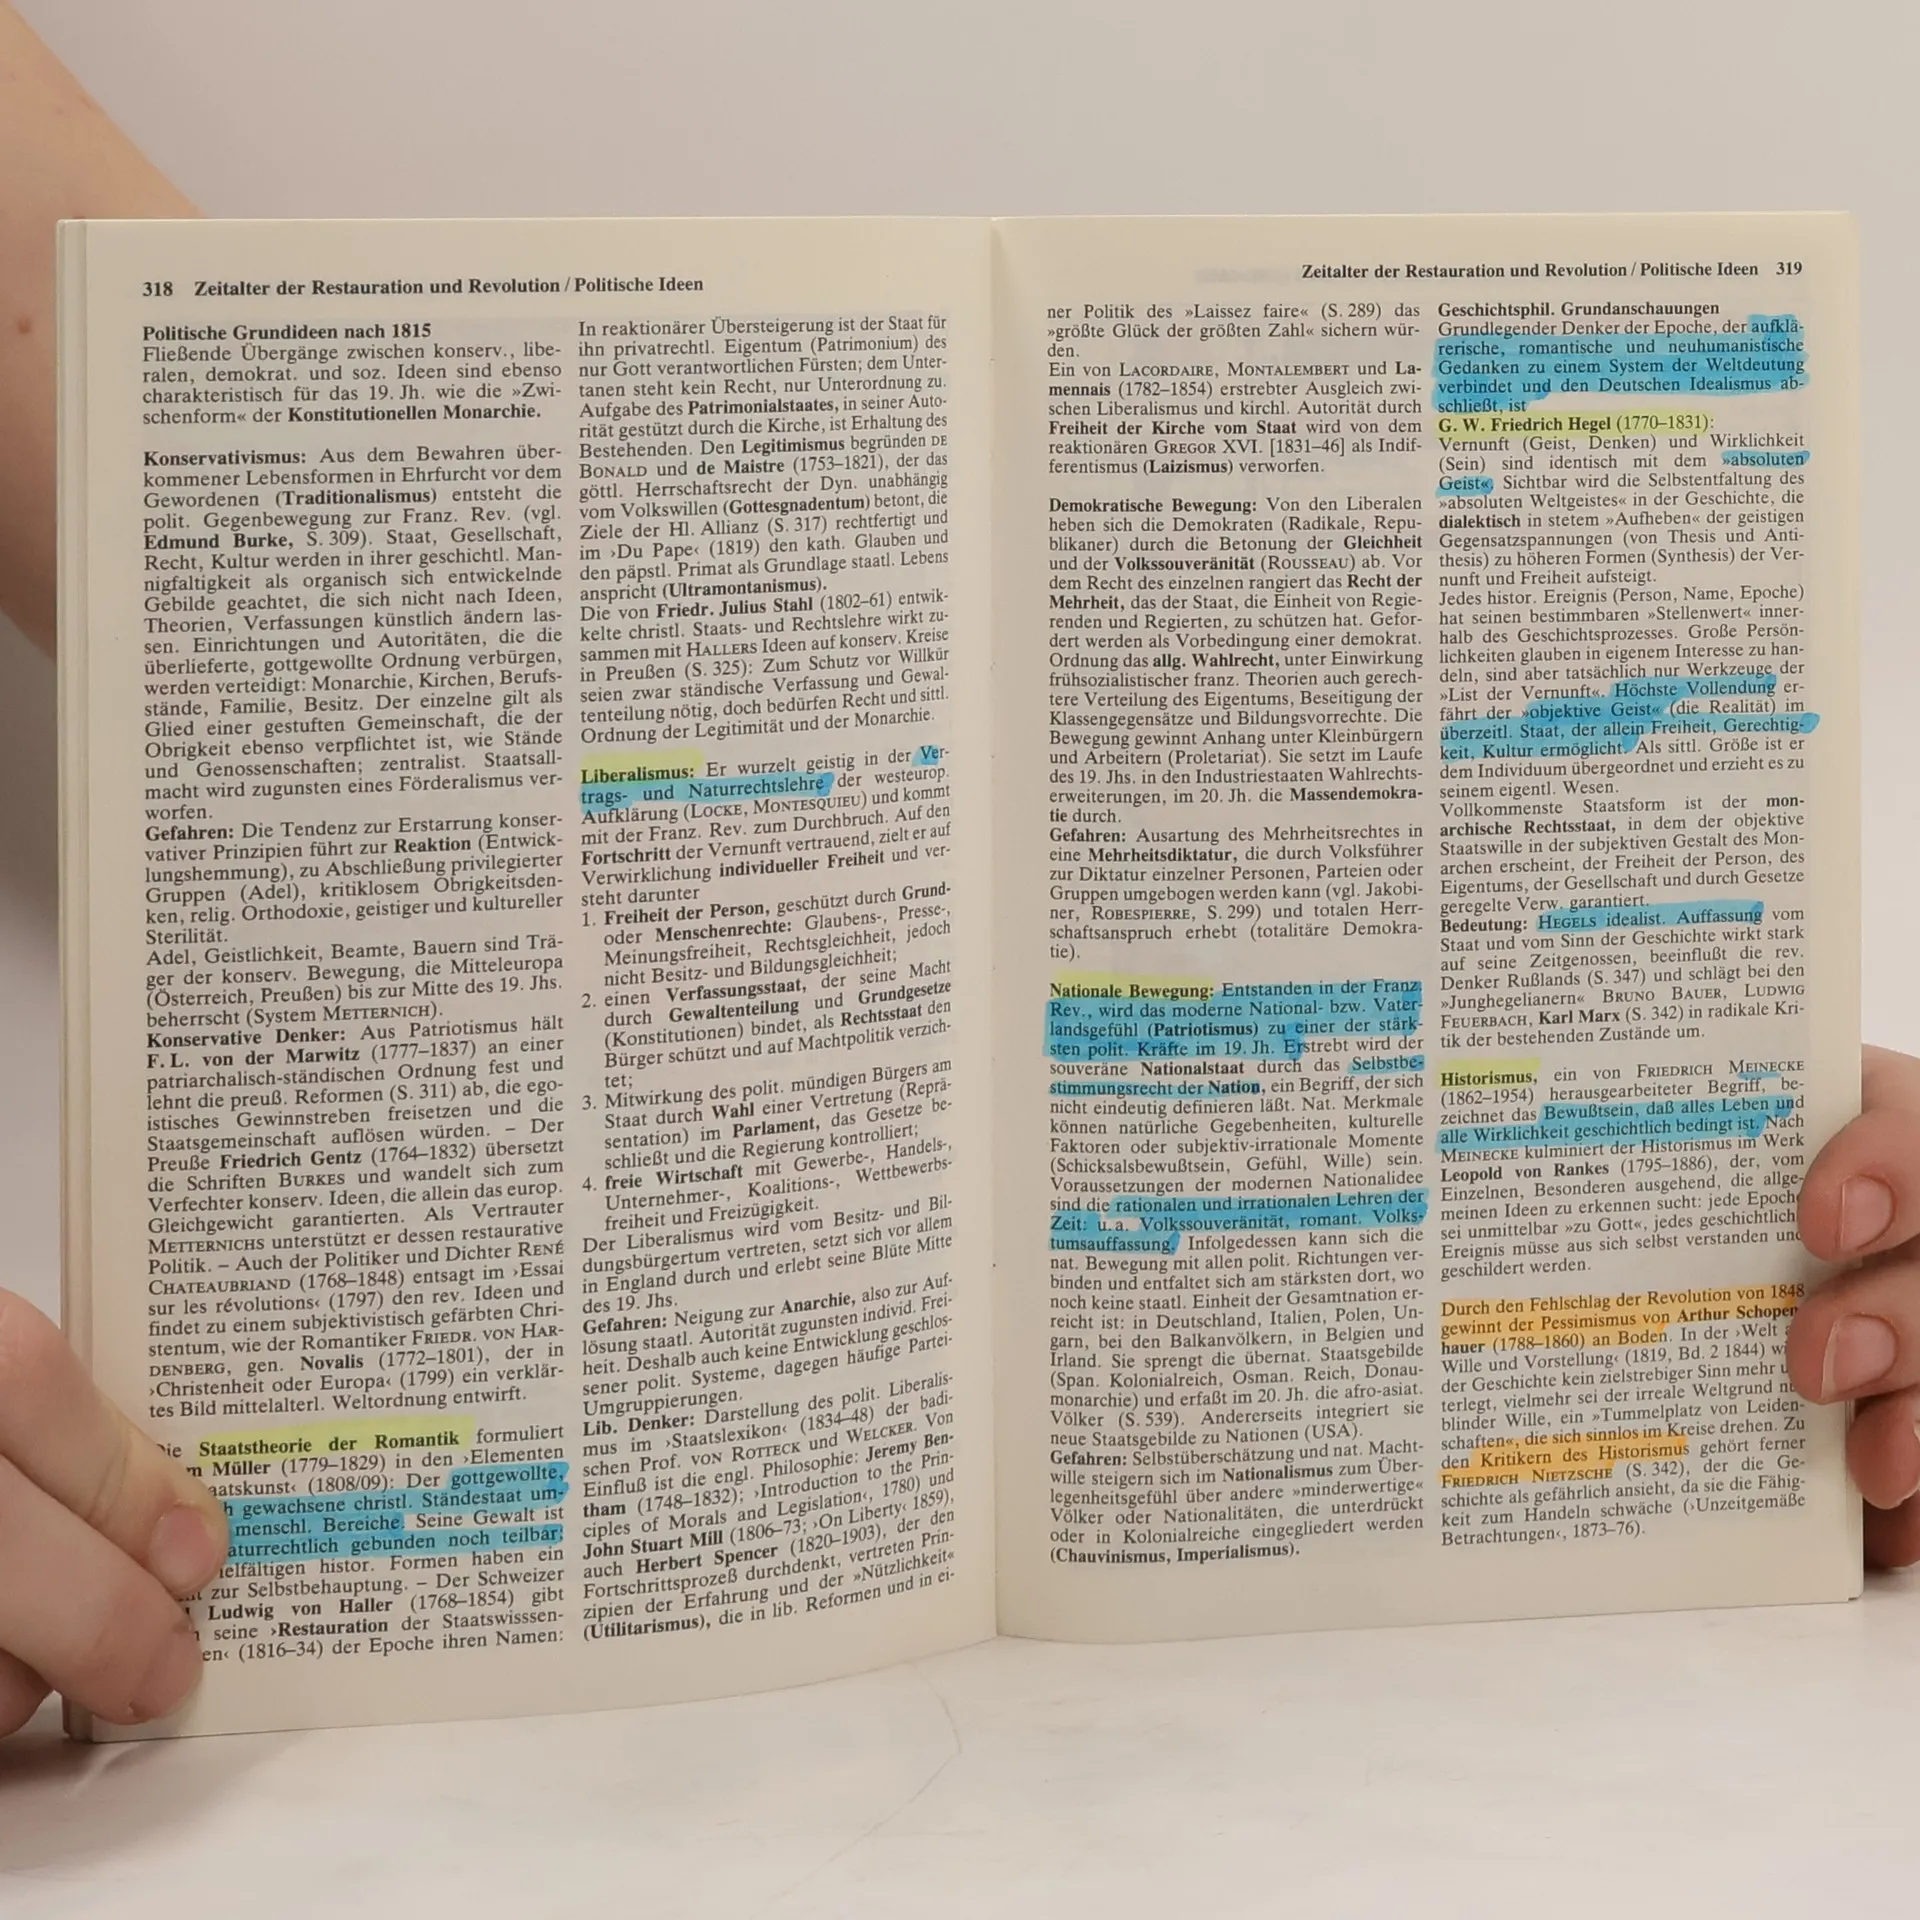 318 Zeitalter der Restauration und Revolution / Politische Ideen
Politische Grundideen nach 1815
Fließende Übergänge zwischen konserv., libe-
ralen, demokrat. und soz. Ideen sind ebenso
charakteristisch für das 19. Jh. wie die »Zwi-
schenform« der Konstitutionellen Monarchie.
Konservativismus: Aus dem Bewahren über-
kommener Lebensformen in Ehrfurcht vor dem
Gewordenen (Traditionalismus) entsteht die
polit. Gegenbewegung zur Franz. Rev. (vgl.
Edmund Burke, S. 309). Staat, Gesellschaft,
Recht, Kultur werden in ihrer geschichtl. Man-
nigfaltigkeit als organisch sich entwickelnde
Gebilde geachtet, die sich nicht nach Ideen,
Theorien, Verfassungen künstlich ändern las-
sen. Einrichtungen und Autoritäten, die die
überlieferte, gottgewollte Ordnung verbürgen,
werden verteidigt: Monarchie, Kirchen, Berufs-
stände, Familie, Besitz. Der einzelne gilt als
Glied einer gestuften Gemeinschaft, die der
Obrigkeit ebenso verpflichtet ist, wie Stände
und Genossenschaften; zentralist. Staatsall-
macht wird zugunsten eines Förderalismus ver-
worfen.
Gefahren: Die Tendenz zur Erstarrung konser-
vativer Prinzipien führt zur Reaktion (Entwick-
lungshemmung), zu Abschließung privilegierter
Gruppen (Adel), kritiklosem Obrigkeitsden-
ken, relig. Orthodoxie, geistiger und kultureller
Sterilität.
Adel, Geistlichkeit, Beamte, Bauern sind Trä-
ger der konserv. Bewegung, die Mitteleuropa
(Österreich, Preußen) bis zur Mitte des 19. Jhs.
beherrscht (System METTERNICH).
Konservative Denker: Aus Patriotismus hält
F. L. von der Marwitz (1777–1837) an einer
patriarchalisch-ständischen Ordnung fest und
lehnt die preuß. Reformen (S. 311) ab, die ego-
istisches Gewinnstreben freisetzen und die
Staatsgemeinschaft auflösen würden. – Der
Preuße Friedrich Gentz (1764–1832) übersetzt
die Schriften BURKES und wandelt sich zum
Verfechter konserv. Ideen, die allein das europ.
Gleichgewicht garantierten. Als Vertrauter
METTERNICHS unterstützt er dessen restaurative
Politik. – Auch der Politiker und Dichter RENÉ
CHATEAUBRIAND (1768–1848) entsagt im ›Essai
sur les révolutions‹ (1797) den rev. Ideen und
findet zu einem subjektivistisch gefärbten Chri-
stentum, wie der Romantiker FRIEDR. VON HAR-
DENBERG, gen. Novalis (1772–1801), der in
›Christenheit oder Europa‹ (1799) ein verklär-
tes Bild mittelalterl. Weltordnung entwirft.
Die Staatstheorie der Romantik formuliert
Müller (1779–1829) in den ›Elementen
aatskunst‹ (1808/09): Der gottgewollte,
h gewachsene christl. Ständestaat um-
menschl. Bereiche. Seine Gewalt ist
aturrechtlich gebunden noch teilbar;
ielfältigen histor. Formen haben ein
zur Selbstbehauptung. – Der Schweizer
Ludwig von Haller (1768–1854) gibt
seine ›Restauration der Staatswisssen-
en‹ (1816–34) der Epoche ihren Namen:
In reaktionärer Übersteigerung ist der Staat für
ihn privatrechtl. Eigentum (Patrimonium) des
nur Gott verantwortlichen Fürsten; dem Unter-
tanen steht kein Recht, nur Unterordnung zu.
Aufgabe des Patrimonialstaates, in seiner Auto-
rität gestützt durch die Kirche, ist Erhaltung des
Bestehenden. Den Legitimismus begründen DE
BONALD und de Maistre (1753–1821), der das
göttl. Herrschaftsrecht der Dyn. unabhängig
vom Volkswillen (Gottesgnadentum) betont, die
Ziele der Hl. Allianz (S. 317) rechtfertigt und
im ›Du Pape‹ (1819) den kath. Glauben und
den päpstl. Primat als Grundlage staatl. Lebens
anspricht (Ultramontanismus).
Die von Friedr. Julius Stahl (1802–61) entwik-
kelte christl. Staats- und Rechtslehre wirkt zu-
sammen mit HALLERS Ideen auf konserv. Kreise
in Preußen (S. 325): Zum Schutz vor Willkür
seien zwar ständische Verfassung und Gewal-
tenteilung nötig, doch bedürfen Recht und sittl.
Ordnung der Legitimität und der Monarchie.
Liberalismus: Er wurzelt geistig in der Ver-
trags- und Naturrechtslehre der westeurop.
Aufklärung (LOCKE, MONTESQUIEU) und kommt
mit der Franz. Rev. zum Durchbruch. Auf den
Fortschritt der Vernunft vertrauend, zielt er auf
Verwirklichung individueller Freiheit und ver-
steht darunter
1. Freiheit der Person, geschützt durch Grund-
oder Menschenrechte: Glaubens-, Presse-,
Meinungsfreiheit, Rechtsgleichheit, jedoch
nicht Besitz- und Bildungsgleichheit;
2. einen Verfassungsstaat, der seine Macht
durch Gewaltenteilung und Grundgesetze
(Konstitutionen) bindet, als Rechtsstaat den
Bürger schützt und auf Machtpolitik verzich-
tet;
3. Mitwirkung des polit. mündigen Bürgers am
Staat durch Wahl einer Vertretung (Reprä-
sentation) im Parlament, das Gesetze be-
schließt und die Regierung kontrolliert;
4. freie Wirtschaft mit Gewerbe-, Handels-,
Unternehmer-, Koalitions-, Wettbewerbs-
freiheit und Freizügigkeit.
Der Liberalismus wird vom Besitz- und Bil-
dungsbürgertum vertreten, setzt sich vor allem
in England durch und erlebt seine Blüte Mitte
des 19. Jhs.
Gefahren: Neigung zur Anarchie, also zur Auf-
lösung staatl. Autorität zugunsten individ. Frei-
heit. Deshalb auch keine Entwicklung geschlos-
sener polit. Systeme, dagegen häufige Partei-
Umgruppierungen.
Lib. Denker: Darstellung des polit. Liberalis-
mus im ›Staatslexikon‹ (1834–48) der badi-
schen Prof. VON ROTTECK und WELCKER. Von
Einfluß ist die engl. Philosophie: Jeremy Ben-
tham (1748–1832); ›Introduction to the Prin-
ciples of Morals and Legislation‹, 1780) und
John Stuart Mill (1806–73; ›On Liberty‹ 1859),
auch Herbert Spencer (1820–1903), der den
Fortschrittsprozeß durchdenkt, vertreten Prin-
zipien der Erfahrung und der »Nützlichkeit«
(Utilitarismus), die in lib. Reformen und in ei-
Zeitalter der Restauration und Revolution / Politische Ideen 319
ner Politik des »Laissez faire« (S. 289) das
»größte Glück der größten Zahl« sichern wür-
den.
Ein von LACORDAIRE, MONTALEMBERT und La-
mennais (1782–1854) erstrebter Ausgleich zwi-
schen Liberalismus und kirchl. Autorität durch
Freiheit der Kirche vom Staat wird von dem
reaktionären GREGOR XVI. [1831–46] als Indif-
ferentismus (Laizismus) verworfen.
Demokratische Bewegung: Von den Liberalen
heben sich die Demokraten (Radikale, Repu-
blikaner) durch die Betonung der Gleichheit
und der Volkssouveränität (ROUSSEAU) ab. Vor
dem Recht des einzelnen rangiert das Recht der
Mehrheit, das der Staat, die Einheit von Regie-
renden und Regierten, zu schützen hat. Gefor-
dert werden als Vorbedingung einer demokrat.
Ordnung das allg. Wahlrecht, unter Einwirkung
frühsozialistischer franz. Theorien auch gerech-
tere Verteilung des Eigentums, Beseitigung der
Klassengegensätze und Bildungsvorrechte. Die
Bewegung gewinnt Anhang unter Kleinbürgern
und Arbeitern (Proletariat). Sie setzt im Laufe
des 19. Jhs. in den Industriestaaten Wahlrechts-
erweiterungen, im 20. Jh. die Massendemokra-
tie durch.
Gefahren: Ausartung des Mehrheitsrechtes in
eine Mehrheitsdiktatur, die durch Volksführer
zur Diktatur einzelner Personen, Parteien oder
Gruppen umgebogen werden kann (vgl. Jakobi-
ner, ROBESPIERRE, S. 299) und totalen Herr-
schaftsanspruch erhebt (totalitäre Demokra-
tie).
Nationale Bewegung: Entstanden in der Franz.
Rev., wird das moderne National- bzw. Vater-
landsgefühl (Patriotismus) zu einer der stärk-
sten polit. Kräfte im 19. Jh. Erstrebt wird der
souveräne Nationalstaat durch das Selbstbe-
stimmungsrecht der Nation, ein Begriff, der sich
nicht eindeutig definieren läßt. Nat. Merkmale
können natürliche Gegebenheiten, kulturelle
Faktoren oder subjektiv-irrationale Momente
(Schicksalsbewußtsein, Gefühl, Wille) sein.
Voraussetzungen der modernen Nationalidee
sind die rationalen und irrationalen Lehren der
Zeit: u. a. Volkssouveränität, romant. Volks-
tumsauffassung. Infolgedessen kann sich die
nat. Bewegung mit allen polit. Richtungen ver-
binden und entfaltet sich am stärksten dort, wo
noch keine staatl. Einheit der Gesamtnation er-
reicht ist: in Deutschland, Italien, Polen, Un-
garn, bei den Balkanvölkern, in Belgien und
Irland. Sie sprengt die übernat. Staatsgebilde
(Span. Kolonialreich, Osman. Reich, Donau-
monarchie) und erfaßt im 20. Jh. die afro-asiat.
Völker (S. 539). Andererseits integriert sie
neue Staatsgebilde zu Nationen (USA).
Gefahren: Selbstüberschätzung und nat. Macht-
wille steigern sich im Nationalismus zum Über-
legenheitsgefühl über andere »minderwertige«
Völker oder Nationalitäten, die unterdrückt
oder in Kolonialreiche eingegliedert werden
(Chauvinismus, Imperialismus).
Geschichtsphil. Grundanschauungen
Grundlegender Denker der Epoche, der aufklä-
rerische, romantische und neuhumanistische
Gedanken zu einem System der Weltdeutung
verbindet und den Deutschen Idealismus ab-
schließt, ist
G. W. Friedrich Hegel (1770–1831):
Vernunft (Geist, Denken) und Wirklichkeit
(Sein) sind identisch mit dem »absoluten
Geist«. Sichtbar wird die Selbstentfaltung des
»absoluten Weltgeistes« in der Geschichte, die
dialektisch in stetem »Aufheben« der geistigen
Gegensatzspannungen (von Thesis und Anti-
thesis) zu höheren Formen (Synthesis) der Ver-
nunft und Freiheit aufsteigt.
Jedes histor. Ereignis (Person, Name, Epoche)
hat seinen bestimmbaren »Stellenwert« inner-
halb des Geschichtsprozesses. Große Persön-
lichkeiten glauben in eigenem Interesse zu han-
deln, sind aber tatsächlich nur Werkzeuge der
»List der Vernunft«. Höchste Vollendung er-
fährt der »objektive Geist« (die Realität) im
überzeitl. Staat, der allein Freiheit, Gerechtig-
keit, Kultur ermöglicht. Als sittl. Größe ist er
dem Individuum übergeordnet und erzieht es zu
seinem eigentl. Wesen.
Vollkommenste Staatsform ist der mon-
archische Rechtsstaat, in dem der objektive
Staatswille in der subjektiven Gestalt des Mon-
archen erscheint, der Freiheit der Person, des
Eigentums, der Gesellschaft und durch Gesetze
geregelte Verw. garantiert.
Bedeutung: HEGELS idealist. Auffassung vom
Staat und vom Sinn der Geschichte wirkt stark
auf seine Zeitgenossen, beeinflußt die rev.
Denker Rußlands (S. 347) und schlägt bei den
»Junghegelianern« BRUNO BAUER, LUDWIG
FEUERBACH, Karl Marx (S. 342) in radikale Kri-
tik der bestehenden Zustände um.
Historismus, ein von FRIEDRICH MEINECKE
(1862–1954) herausgearbeiteter Begriff, be-
zeichnet das Bewußtsein, daß alles Leben und
alle Wirklichkeit geschichtlich bedingt ist. Nach
MEINECKE kulminiert der Historismus im Werk
Leopold von Rankes (1795–1886), der, vom
Einzelnen, Besonderen ausgehend, die allge-
meinen Ideen zu erkennen sucht: jede Epoche
sei unmittelbar »zu Gott«, jedes geschichtlich
Ereignis müsse aus sich selbst verstanden und
geschildert werden.
Durch den Fehlschlag der Revolution von 1848
gewinnt der Pessimismus von Arthur Schopen
hauer (1788–1860) an Boden. In der ›Welt
Wille und Vorstellung‹ (1819, Bd. 2 1844) wi
der Geschichte kein zielstrebiger Sinn mehr
terlegt, vielmehr sei der irreale Weltgrund nu
blinder Wille, ein »Tummelplatz von Leiden-
schaften«, die sich sinnlos im Kreise drehen. Zu
den Kritikern des Historismus gehört ferner
FRIEDRICH NIETZSCHE (S. 342), der die Ge-
schichte als gefährlich ansieht, da sie die Fähig-
keit zum Handeln schwäche (›Unzeitgemäße
Betrachtungen‹, 1873–76).